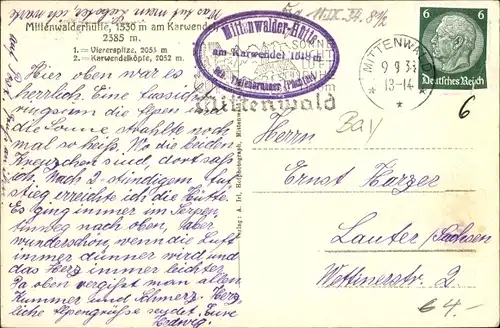 Mittenwalderhütte, 1530 m am Karwendel
2385 m.
1.— Viererspitze, 2053 m
2.— Karwendelköpfe, 2052 m.
Hier oben war es
herrlich. Eine Aussicht
ringsum die Alpen und
die Sonne strahlte noch
mal so heiß. Wo die beiden
Kreuzchen sind, dort saß
ich. Nach 2-stündigem Auf-
stieg erreichte ich die Hütte.
Es ging immer im Serpen-
tinweg nach oben, aber
wunderschön, wenn die Luft
immer dünner wird und
das Herz immer leichter.
Ja oben vergißt man allen
Kummer und Schmerz. Herz-
liche Alpengrüße sendet Eure
Hedwig.
Mittenwalder-Hütte
am Karwendel 1518 m
SONNE
Mittenwald
MITTENWALD
9 9 33
13-14
6 6
Deutsches Reich
6
Bay
Herrn
Ernst Harzer
Lauter/Sachsen
Wettinerstr. 2.
64.-